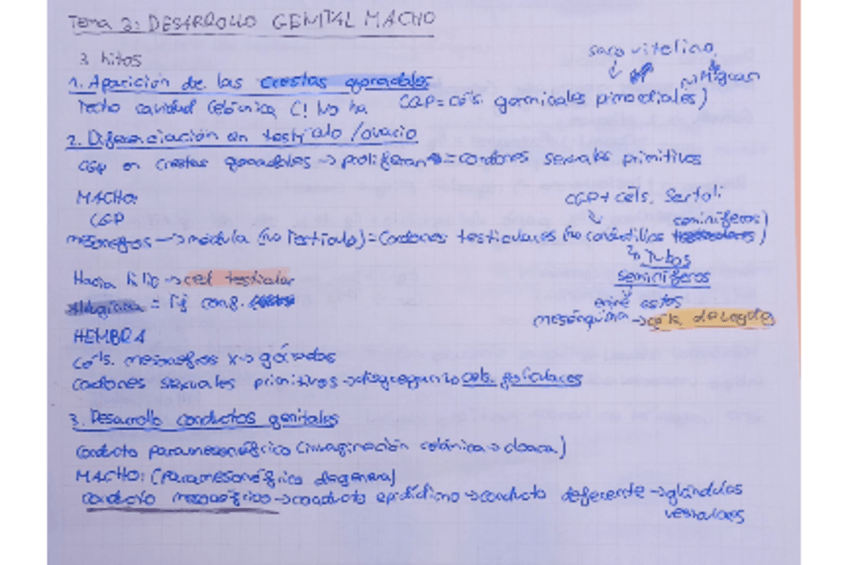 Tema 2: DESARROLLO GENITAL MACHO
3 hitos
saco vitelino
↓
→ Migran
1. Aparición de las crestas gonadales
Techo cavidad celómica (! No ha CGP = céls. germinales primordiales)
2. Diferenciación en testículo / ovario
CGP en crestas gonadales → proliferan = cordones sexuales primitivos
MACHO:
CGP + céls. Sertoli
CGP
seminíferos)
mesonefros → médula (no testículo) = cordones testiculares (no
tubos
Hacia hilio → red testicular
seminíferos
= Tj conj.
entre estos
mesénquima → céls. de Leydig
HEMBRA
Céls. mesonefros x → gónadas
cordones sexuales primitivos → disgregan → céls. foliculares
3. Desarrollo conductos genitales
Conducto paramesonéfrico (invaginación celómica → cloaca)
MACHO: (Paramesonéfrico degenera)
conducto mesonéfrico → conducto epidídimo → conducto deferente → glándulas
vesicales